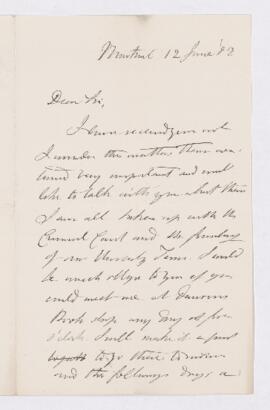 Montreal 12 June '82
Dear Sir,
I have received your note
I consider the matters therein con-
tained very important and would
like to talk with you about them
I am all taken up with the
Criminal Court and the
of our University Term. I would
be much obliged to you if you
could meet me at Dawsons
Book shop any day at five
o'clock I will make it a point
to go there
and the following days a